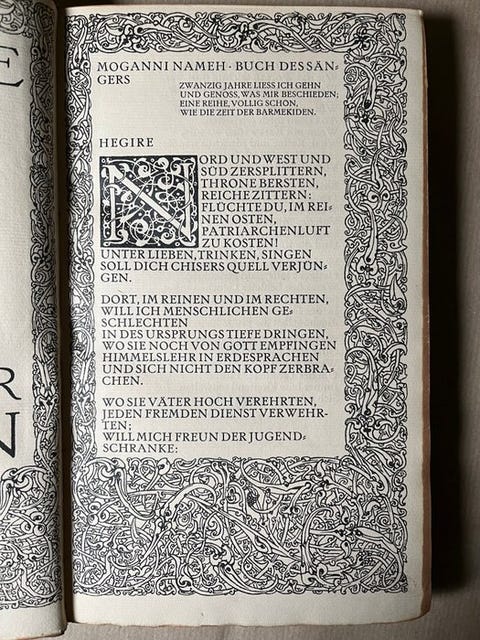 E
R
N
MOGANNI NAMEH · BUCH DES SÄN-
GERS
ZWANZIG JAHRE LIESS ICH GEHN
UND GENOSS, WAS MIR BESCHIEDEN;
EINE REIHE, VÖLLIG SCHÖN,
WIE DIE ZEIT DER BARMEKIDEN.
HEGIRE
NORD UND WEST UND
SÜD ZERSPLITTERN,
THRONE BERSTEN,
REICHE ZITTERN:
FLÜCHTE DU, IM REI-
NEN OSTEN,
PATRIARCHENLUFT
ZU KOSTEN!
UNTER LIEBEN, TRINKEN, SINGEN
SOLL DICH CHISERS QUELL VERJÜN-
GEN.
DORT, IM REINEN UND IM RECHTEN,
WILL ICH MENSCHLICHEN GE-
SCHLECHTEN
IN DES URSPRUNGS TIEFE DRINGEN,
WO SIE NOCH VON GOTT EMPFINGEN
HIMMELSLEHR IN ERDESPRACHEN
UND SICH NICHT DEN KOPF ZERBRA-
CHEN.
WO SIE VÄTER HOCH VEREHRTEN,
JEDEN FREMDEN DIENST VERWEHR-
TEN;
WILL MICH FREUN DER JUGEND-
SCHRANKE: